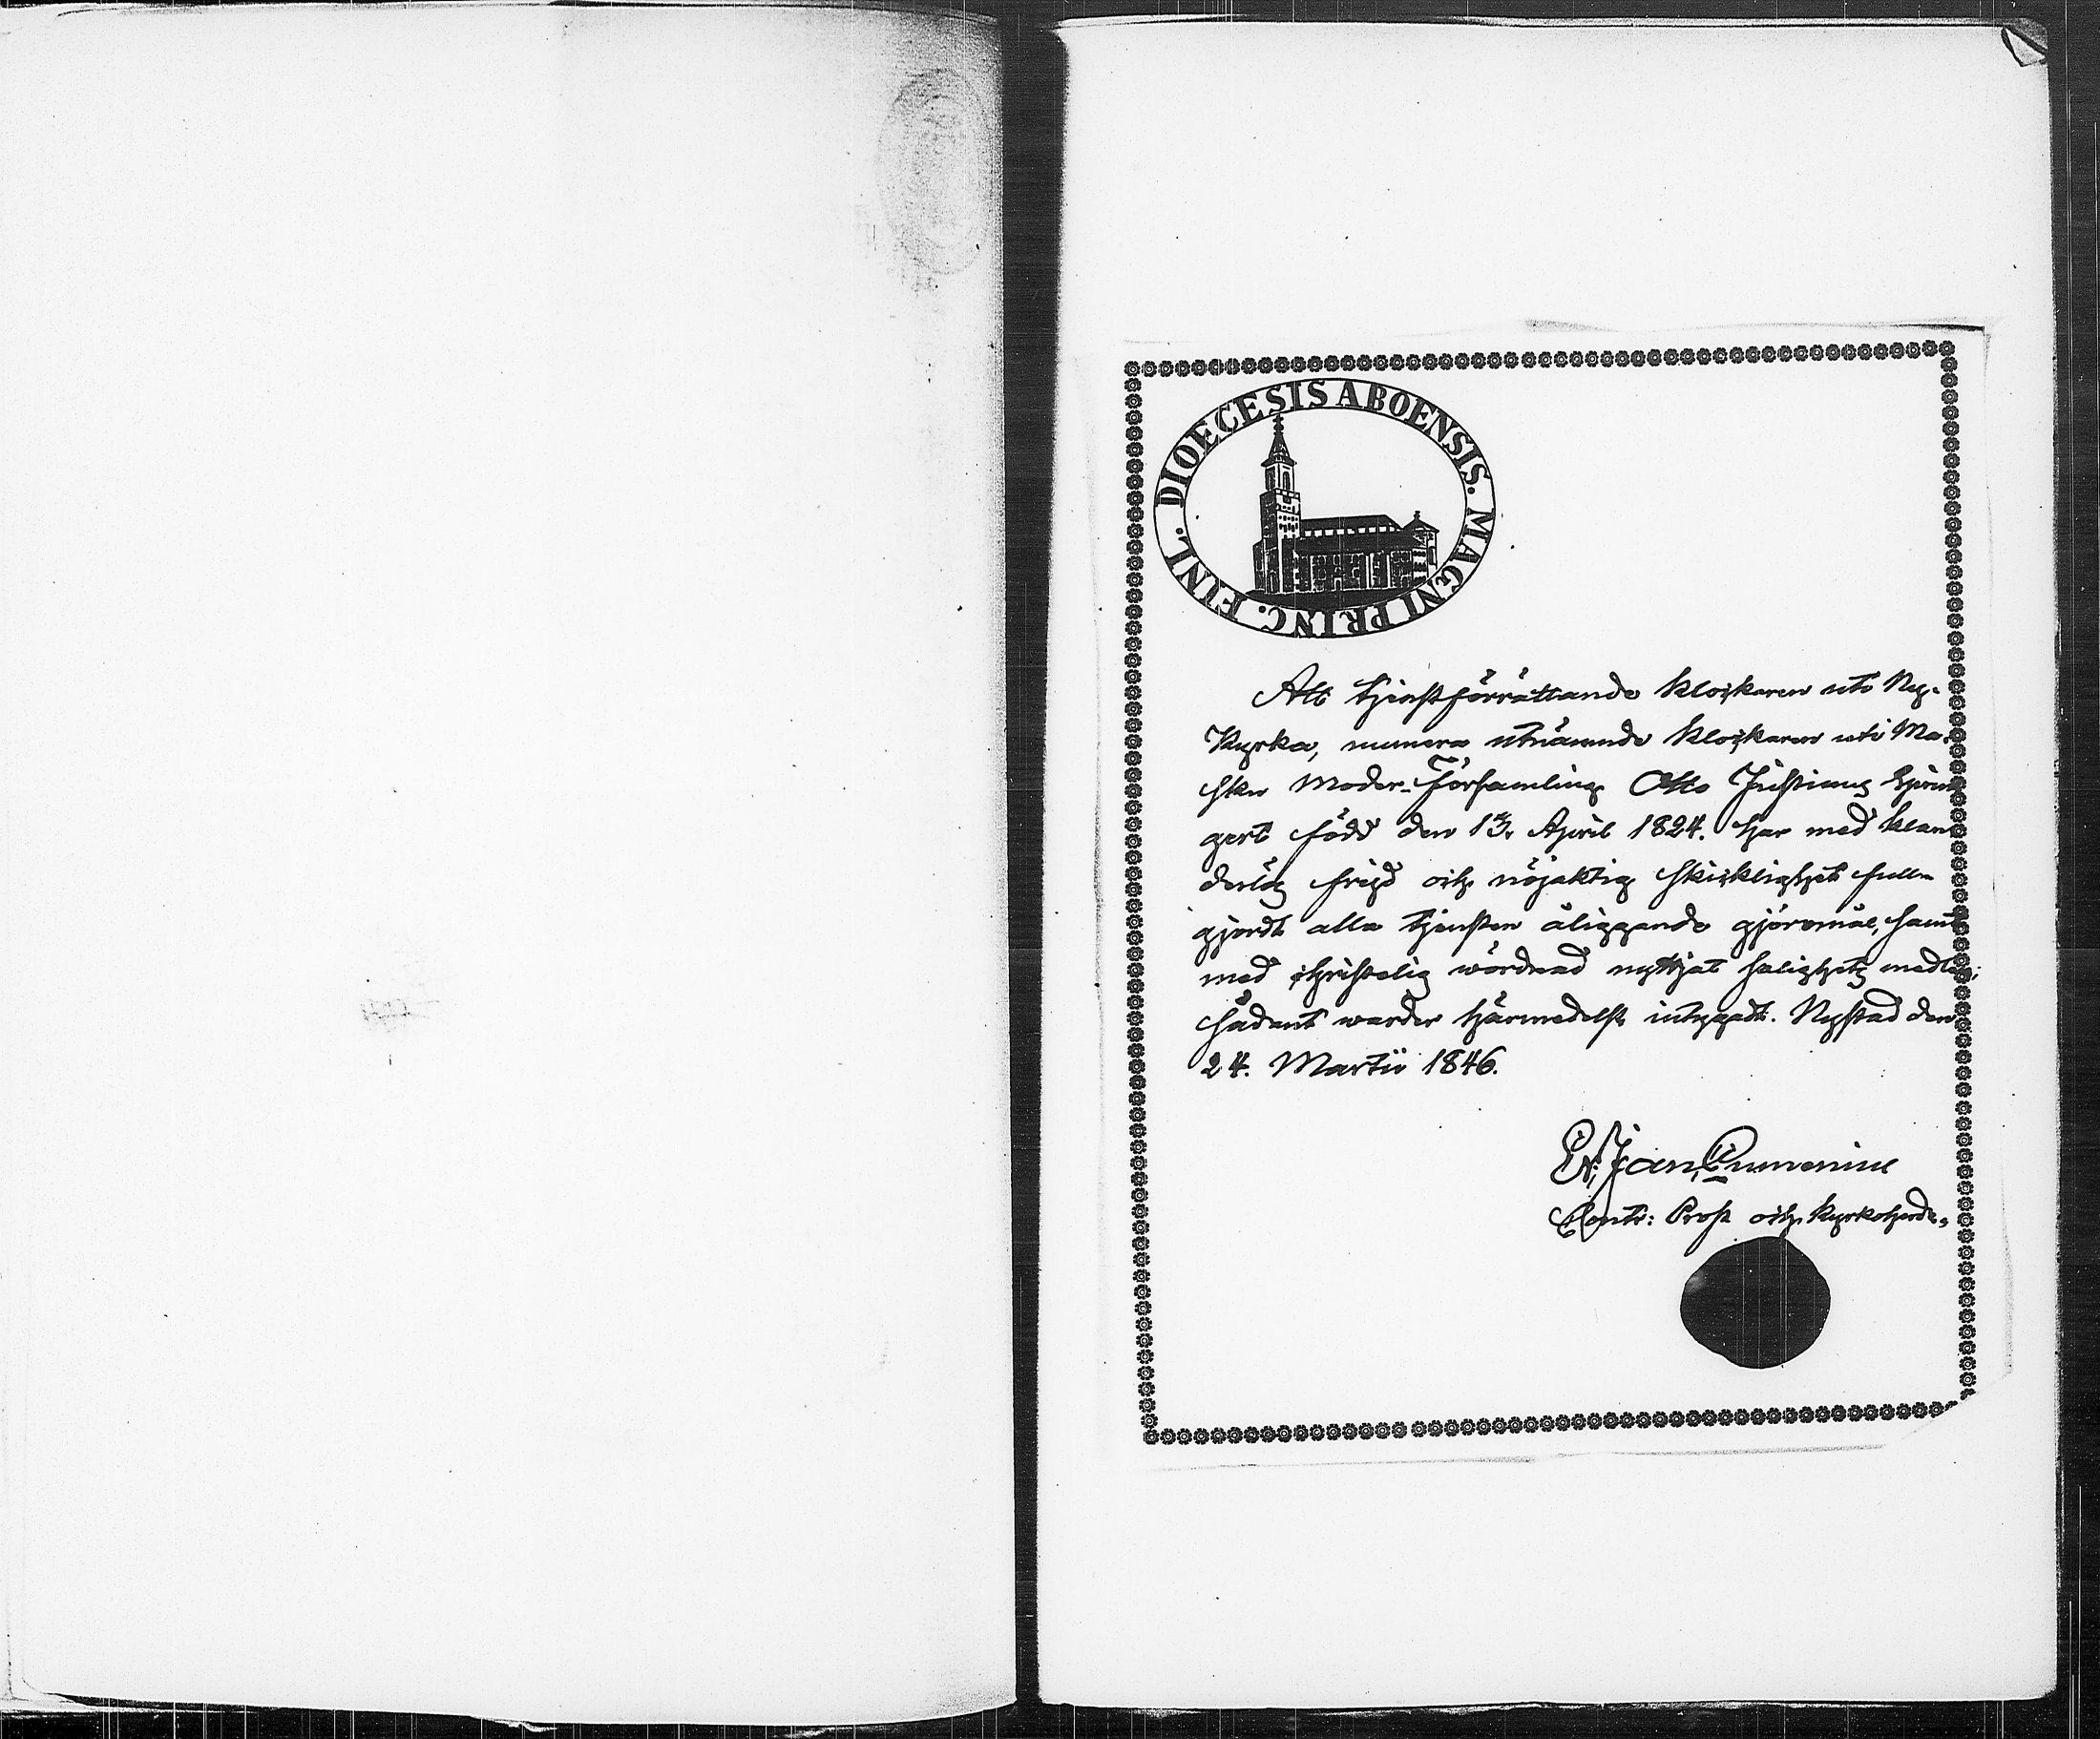 DIOECESIS ABOENSIS. MAGNI PRINC. FINL.
Att tjenstförrättande klockaren uti Ny-
Kyrka, numera utnämnde klockaren uti Ma-
sku Moder-Församling Otto Justianus
gert född den 13. April 1824. har med klan
derlös frejd och nöjaktig skicklighet full-
gjordt alla tjensten åliggande gjöromål, samt
med christelig wördnad nyttjat salighets medlen;
sådant warder härmedelst intygadt. Nystad den
24. Martii 1846.
Contr: Prost och Kyrkoherde.